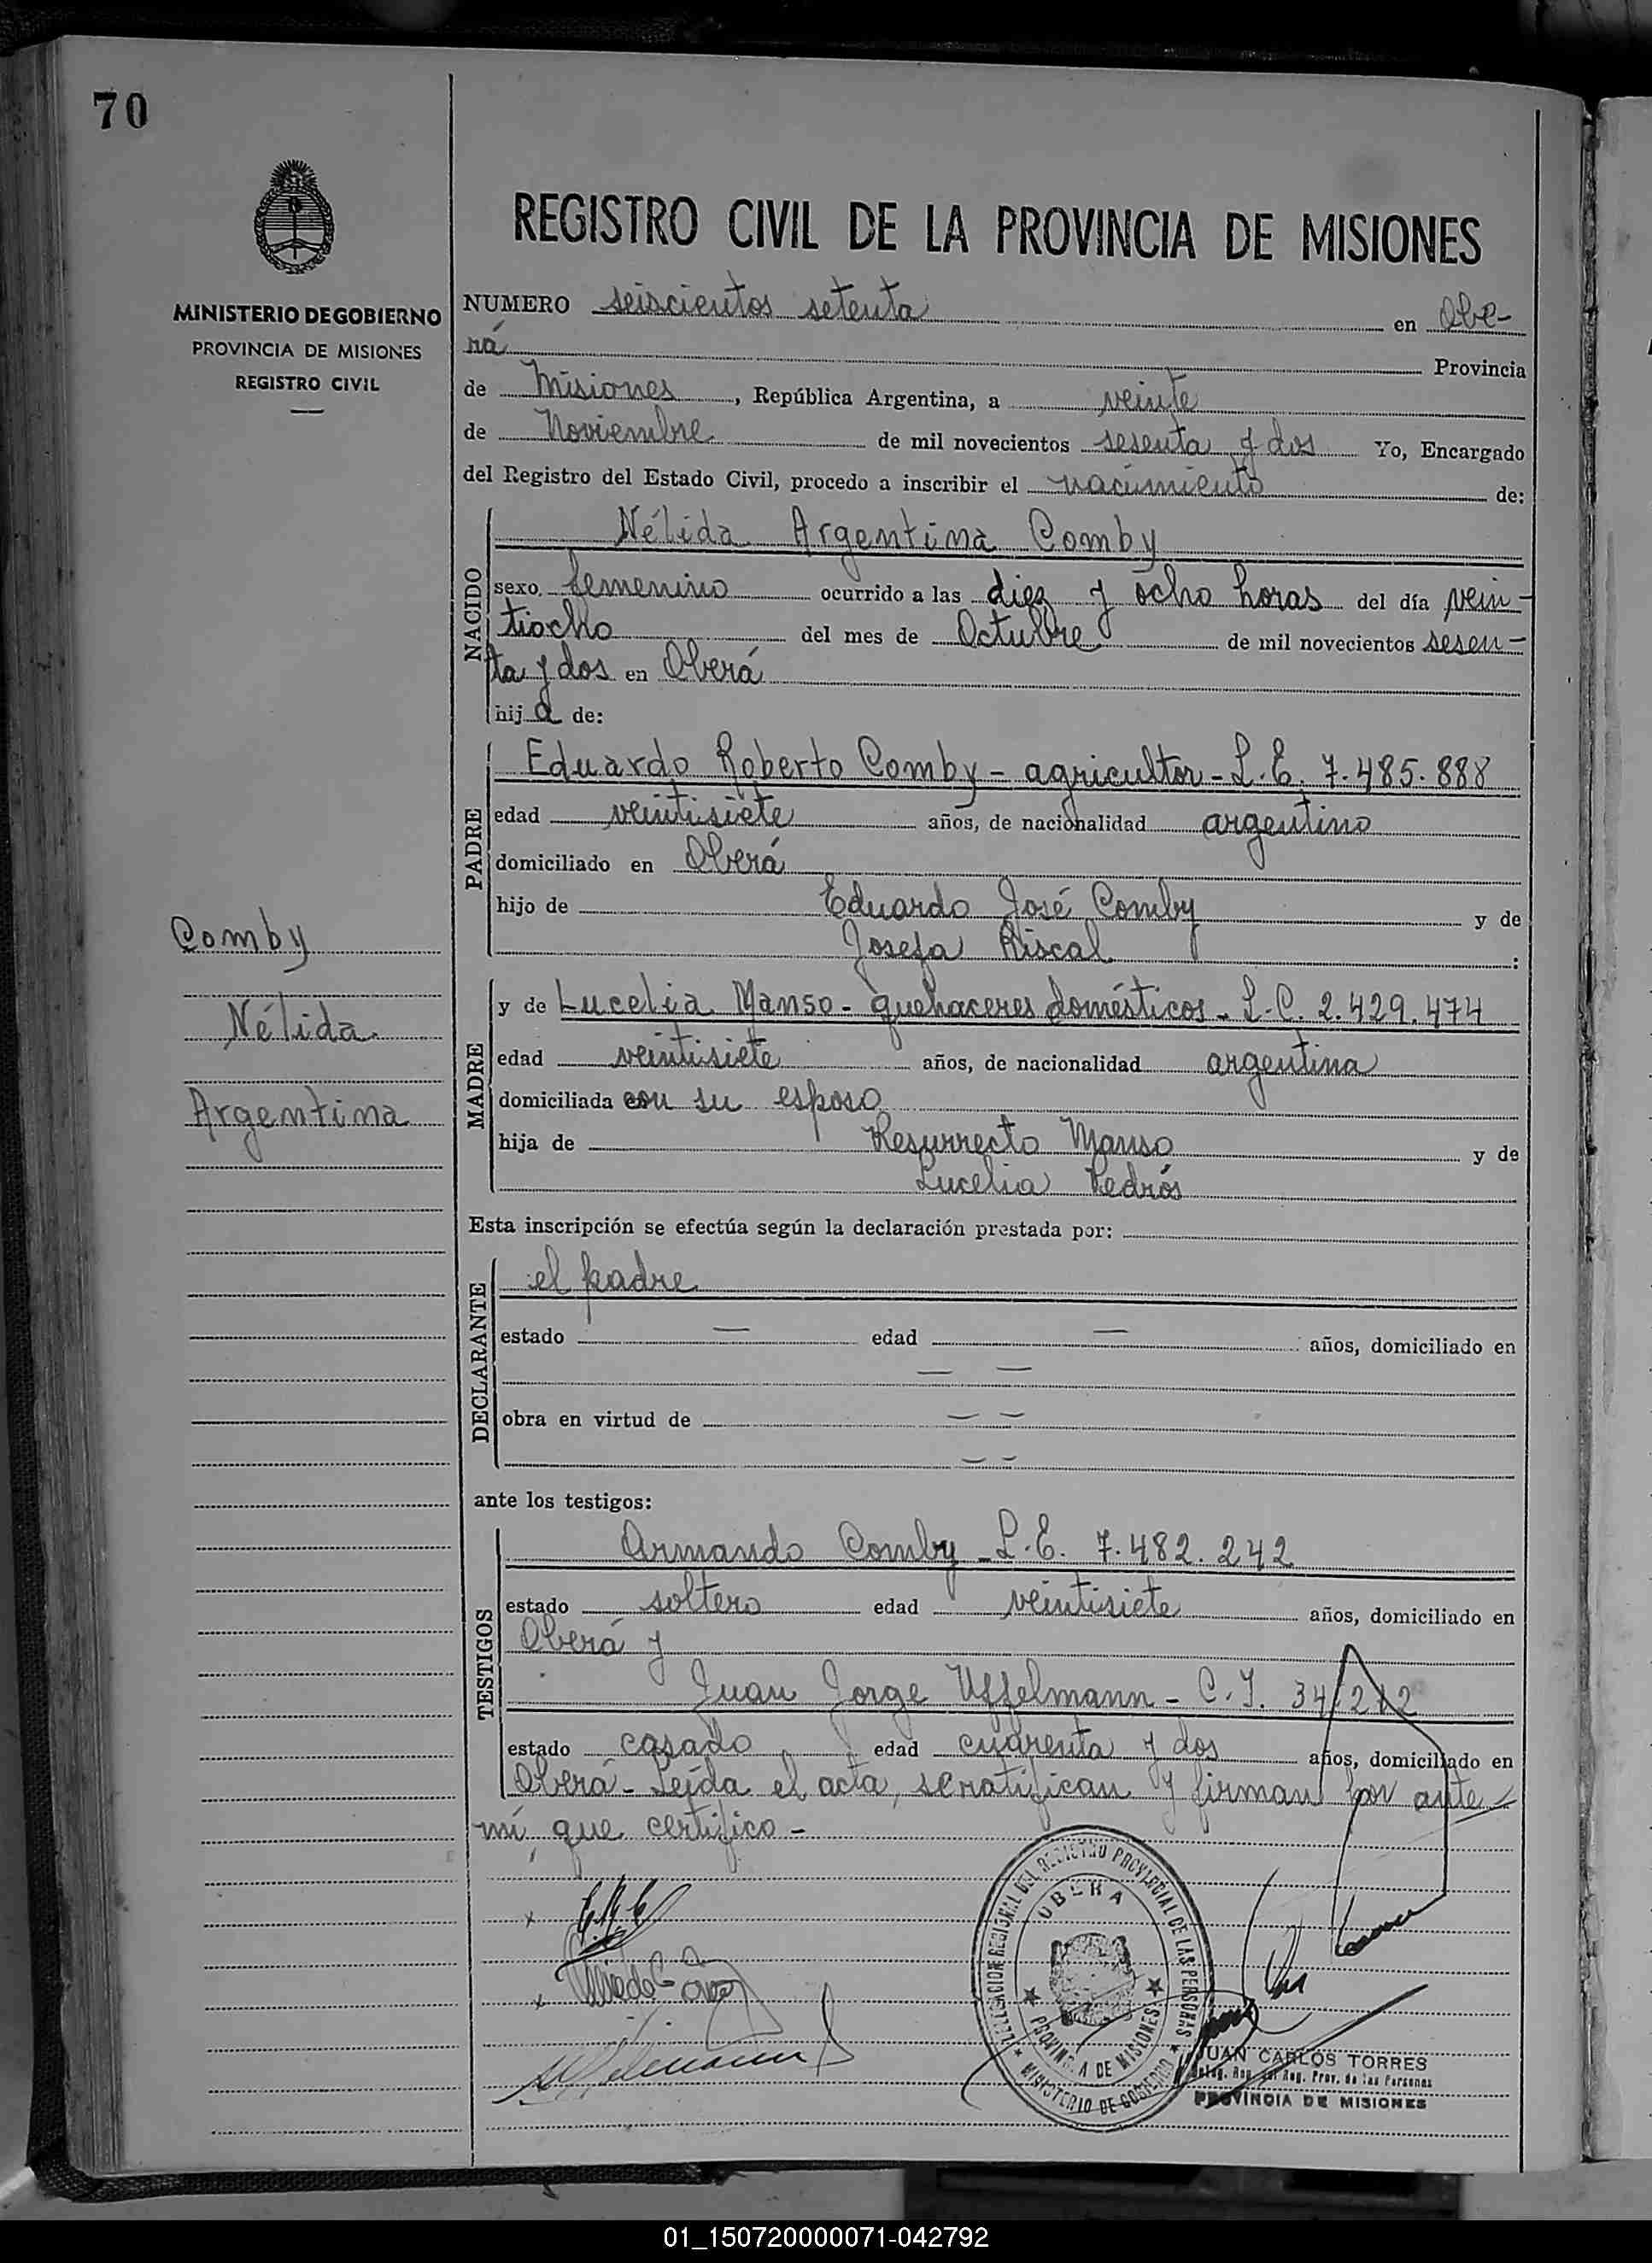 70
REGISTRO CIVIL DE LA PROVINCIA DE MISIONES
MINISTERIO DE GOBIERNO
PROVINCIA DE MISIONES
REGISTRO CIVIL
NUMERO seiscientos setenta en Obe-
rá Provincia
de Misiones, República Argentina, a veinte
de Noviembre de mil novecientos sesenta y dos Yo, Encargado
del Registro del Estado Civil, procedo a inscribir el nacimiento de:
NACIDO
Nélida Argentina Comby
sexo femenino ocurrido a las diez y ocho horas del día vein-
tiocho del mes de Octubre de mil novecientos sesen-
ta y dos en Oberá
hija de:
PADRE
Eduardo Roberto Comby - agricultor - L.E. 7.485.888
edad veintisiete años, de nacionalidad argentino
domiciliado en Oberá
hijo de Eduardo José Comby y de
Josefa Riscal :
Comby
Nélida
Argentina
MADRE
y de Lucelia Manso - quehaceres domésticos - L.C. 2.429.474
edad veintisiete años, de nacionalidad argentina
domiciliada con su esposo
hija de Resurrecto Manso y de
Lucelia Pedrós
Esta inscripción se efectúa según la declaración prestada por:
DECLARANTE
el padre
estado — edad — años, domiciliado en
— —
obra en virtud de — —
— —
ante los testigos:
TESTIGOS
Armando Comby - L.E. 7.482.242
estado soltero edad veintisiete años, domiciliado en
Oberá y
Juan Jorge Uffelmann - C.I. 34.212
estado casado edad cuarenta y dos años, domiciliado en
Oberá - Leída el acta, se ratifican y firman por ante
mí que certifico -
DELEGACION REGIONAL DEL REGISTRO PROVINCIAL DE LAS PERSONAS
OBERA
PROVINCIA DE MISIONES
MINISTERIO DE GOBIERNO
JUAN CARLOS TORRES
Deleg. Reg. del Reg. Prov. de las Personas
PROVINCIA DE MISIONES
01_150720000071-042792